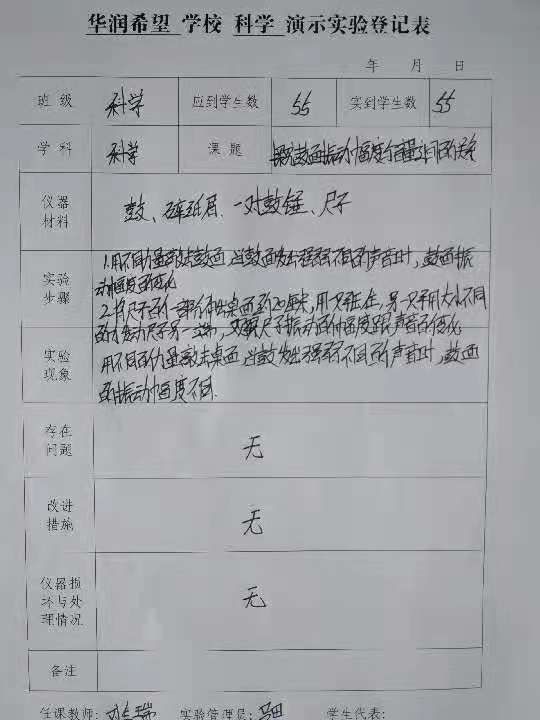 华润希望 学校 科学 演示实验登记表
年 月 日
班级 科学 应到学生数 55 实到学生数 55
学科 科学 课题 鼓面振动幅度与音量之间的关系
仪器材料 鼓、碎纸屑、一对鼓锤、尺子
实验步骤 1.用不同力量敲击鼓面,当鼓面发出强弱不同的声音时,鼓面振
动幅度的变化
2.将尺子的一部分伸出桌面到20厘米,用一只手压住,另一只手用大小不同
的力拨动尺子另一端,观察尺子振动的幅度跟声音的变化
实验现象 用不同的力量敲击桌面,当鼓发出强弱不同的声音时,鼓面
的振动幅度不同.
存在问题 无
改进措施 无
仪器损坏与处理情况 无
备注
任课教师: 实验管理员: 学生代表: